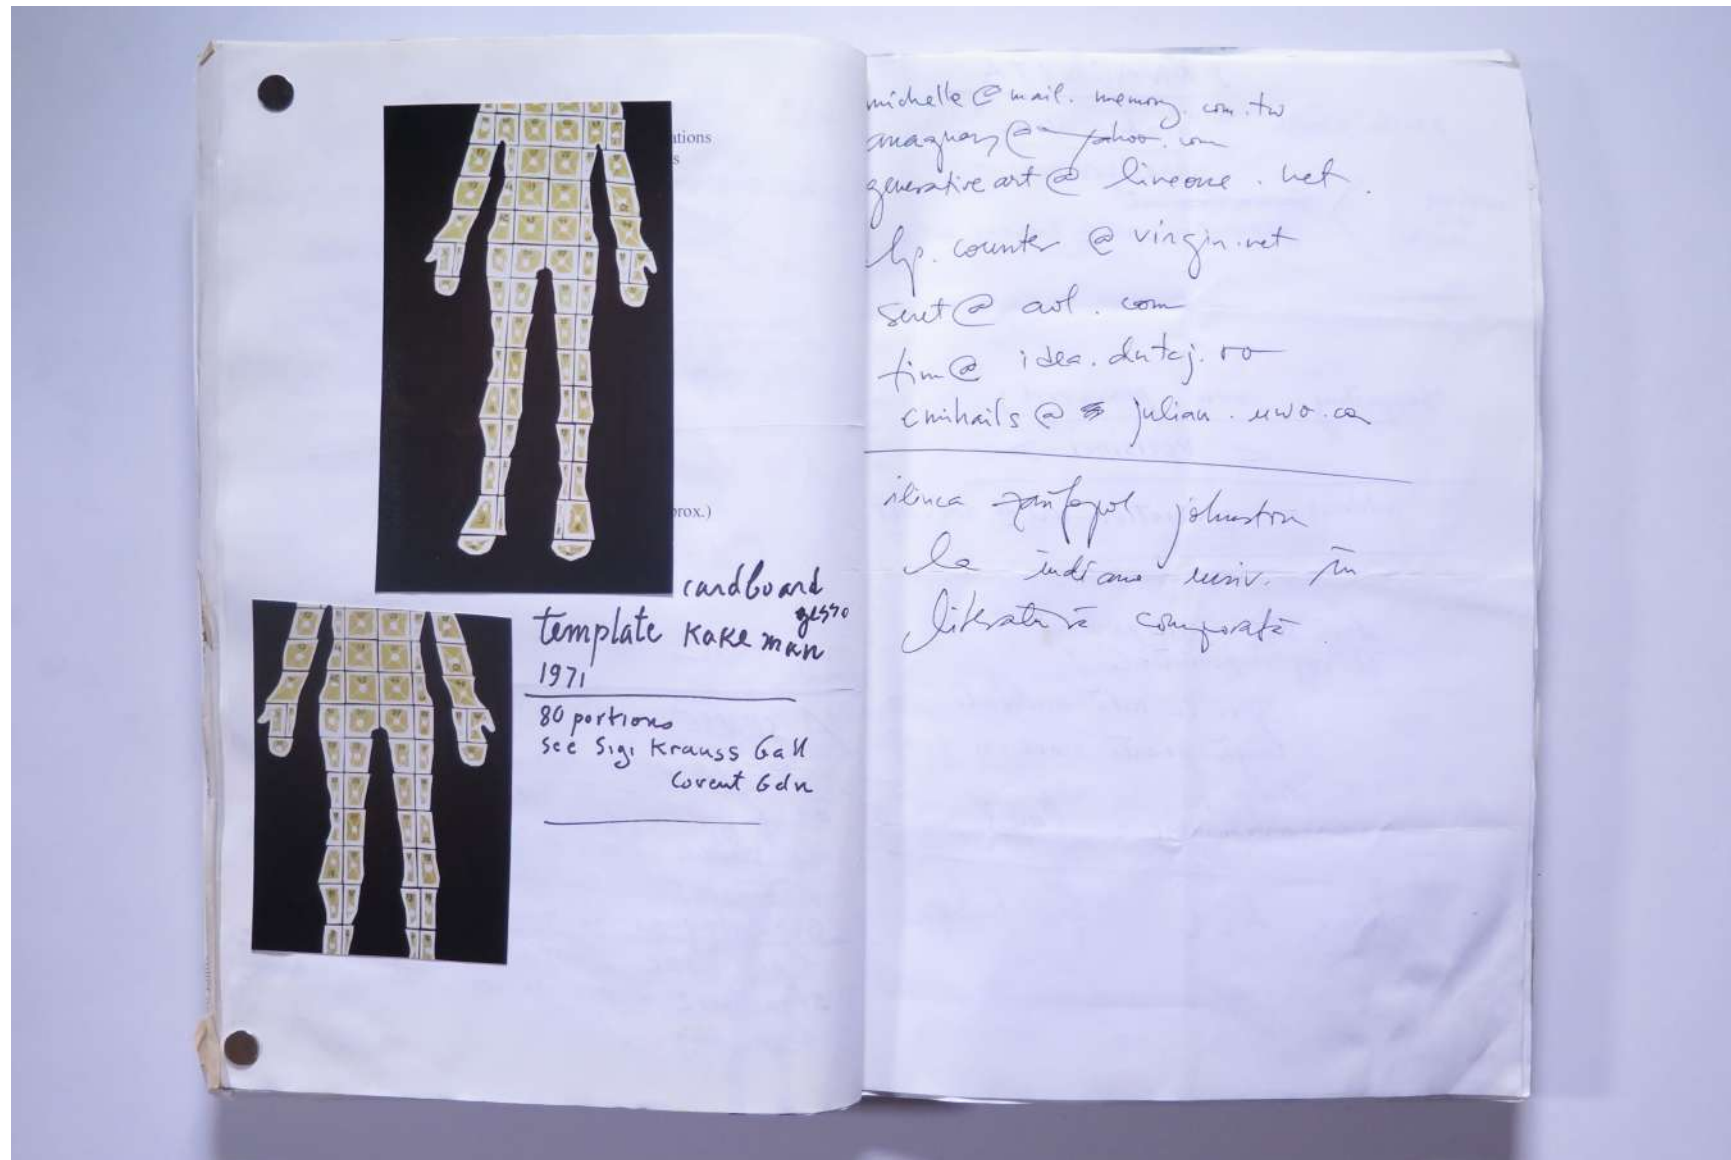 ations
s
prox.)
cardboard
gesso
template KaKe man
1971
80 portions
See Sigi Krauss Gall
Covent Gdn
michelle@mail.memory.com.tw
@yahoo.com
generative art@lineone.net.
hp.counter@virgin.net
seret@aol.com
tim@idea.dntcj.ro
cmihails@julian.uwo.ca
ilinca johnston
la indiana univ. în
literatură comparată.